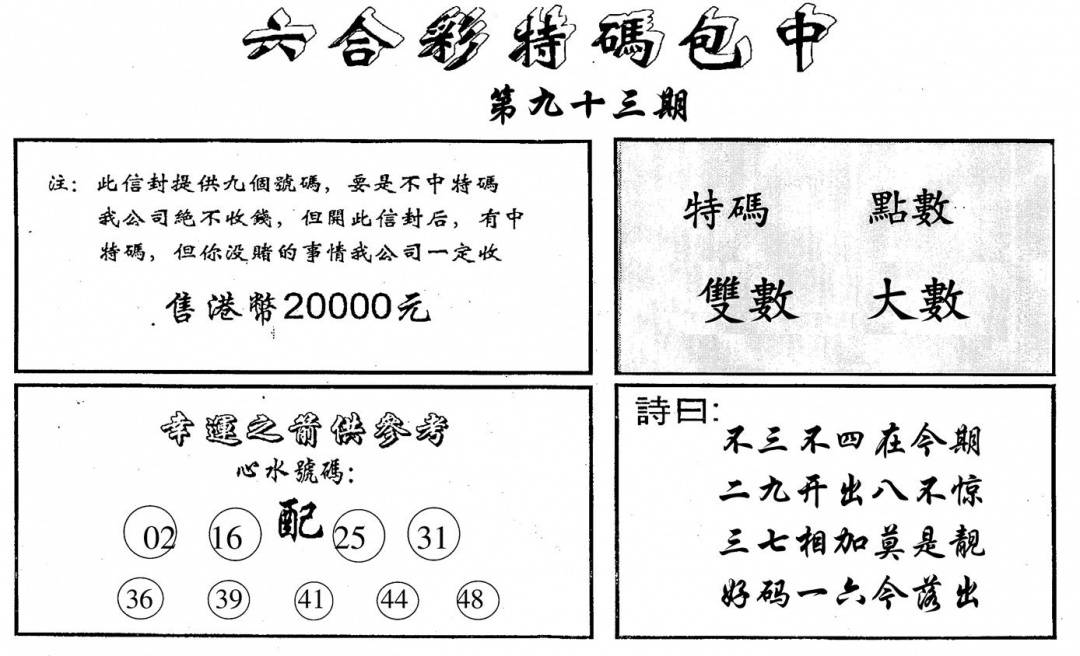 六合彩特碼包中
第九十三期
注：此信封提供九個號碼，要是不中特碼
我公司絶不收錢，但開此信封后，有中
特碼，但你没賭的事情我公司一定收
售港幣20000元
特碼 點數
雙數 大數
幸運之箭供參考
心水號碼：
配
02 16 25 31
36 39 41 44 48
詩曰：
不三不四在今期
二九开出八不惊
三七相加莫是靚
好码一六今落出